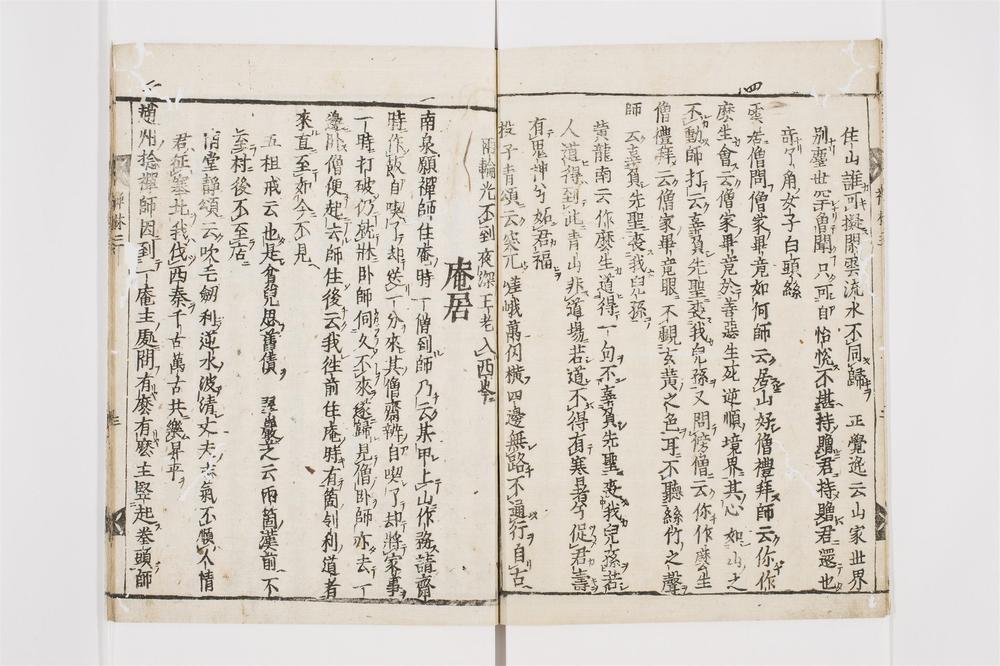 四
住山誰可擬閑雲流水不同歸 正覺逸云山家世界
別塵世罕曽聞只可自怡悅不堪持贈君持贈君還也
奇丫角女子白頭絲
雲居僧問僧家畢竟如何師云居山好僧禮拜師云你作
麽生會云僧家畢竟於善惡生死逆順境界其心如山之
不動師打云辜負先聖喪我兒孫又問傍僧云你作麽生
僧禮拜云僧家畢竟眼不觀玄黄之色耳不聽絲竹之聲
師云辜負先聖喪我兒孫
黄龍南云作麽生道得一句不辜負先聖喪我兒孫若
人道得到此青山非道場若道不得有寒暑兮促君壽
有鬼神兮妬君福
投子青頌云突兀嵯峨萬仞橫四邊無路不通行自古
兩輪光不到夜深王老入西
庵居
一
南泉願禪師住庵時一僧到師乃云某甲上山作務請齋
時作飯自喫了却送一分來其僧齋辨自喫了却將家事
一時打破仍就牀卧師伺久不來遂歸見僧卧師亦去一
邊卧僧便起去師住後云我往前住庵時有箇伶利道者
來直至如今不見
五祖戒云也是貪兒思舊債 云兩箇漢前不
至村後不至店
堂靜頌云吹毛劒利逆水波淸丈夫志氣不順人情
君征塞北我伐西秦千古萬古共樂昇平
二
趙州諗禪師因到一庵主處問有麽有麽主竪起拳頭師